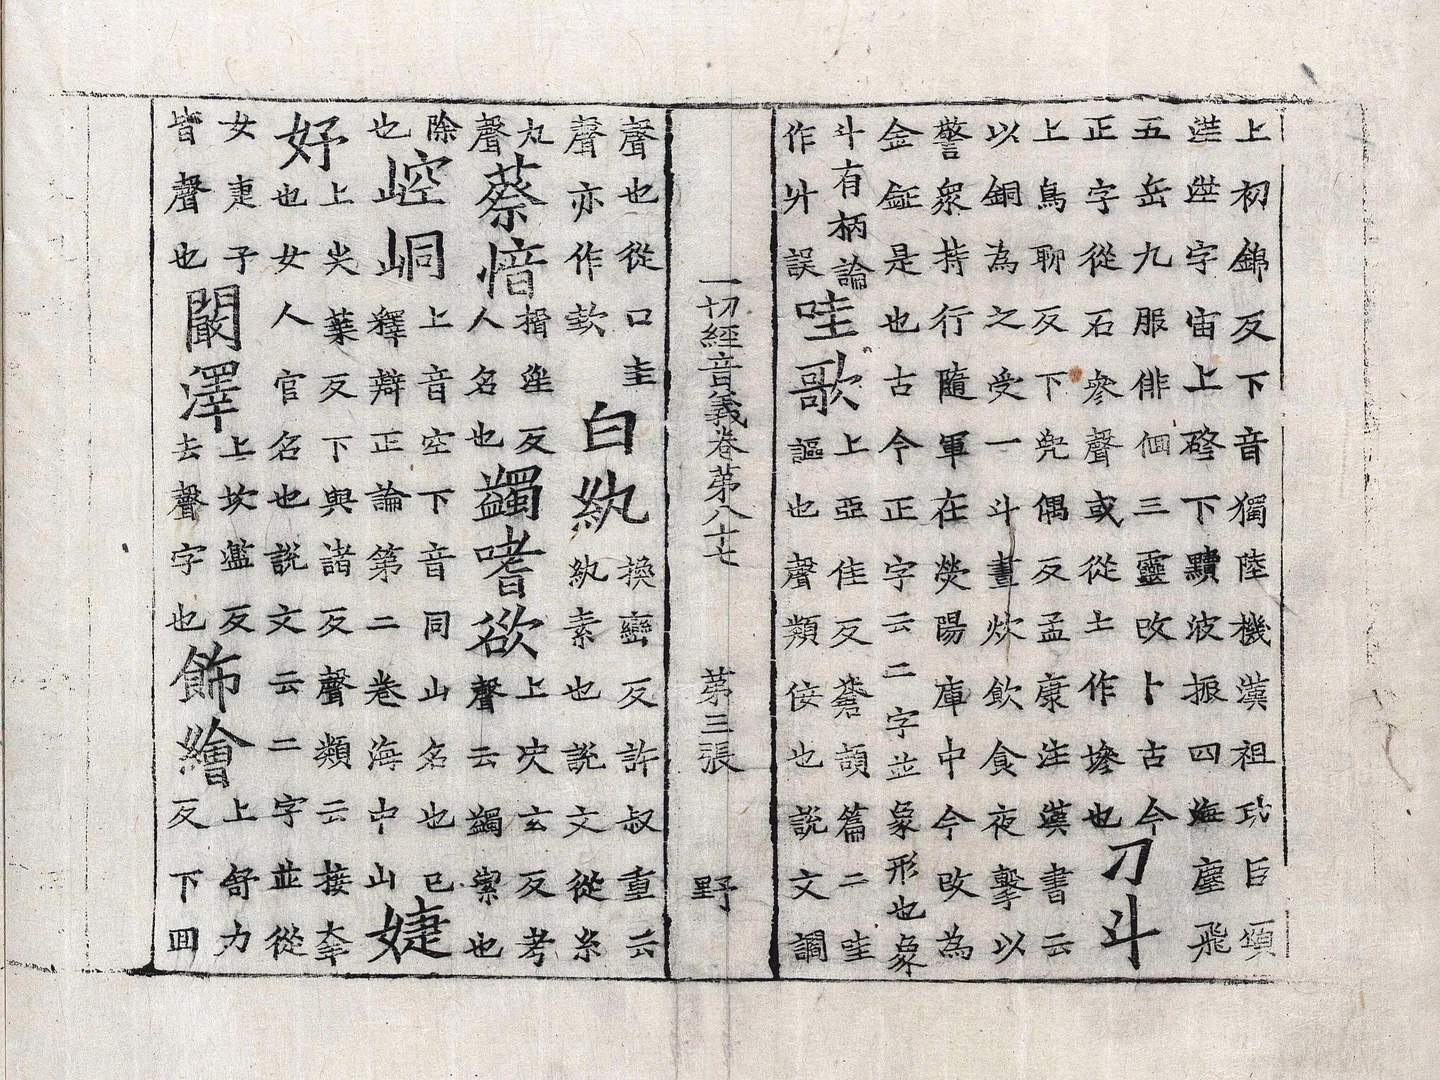 上初錦反下音獨陸機漢祖功臣頌
宙上硶下黷波振四海塵飛
五岳九服俳佪三靈改卜古今
正字從石參聲或從土作墋也刀斗
上鳥聊反下兜偶反孟康注漢書云
以銅為之受一斗晝炊飲食夜擊以
警衆持行隨軍在滎陽庫中今改為
金鉦是也古今正字云二字並象形也象
斗有柄論哇歌上亞佳反蒼頡篇二哇
作廾誤謳也聲類佞也說文調
一切經音義卷第八十七 第三張 野
聲也從口圭換巒反許叔重云
聲亦作欸白紈紈素也說文從糸
丸聲蔡愔揖淫反人名也蠲嗜欲上決玄反考聲云蠲潔也
除也崆峒上音空下音同山名也已釋辯正論第二卷海中山
婕妤上尖葉反下與諸反聲類云接幸也女人官名也說文云二字並從
女疌予皆聲也闞澤上坎濫反去聲字也飾繪上舒力反下囬